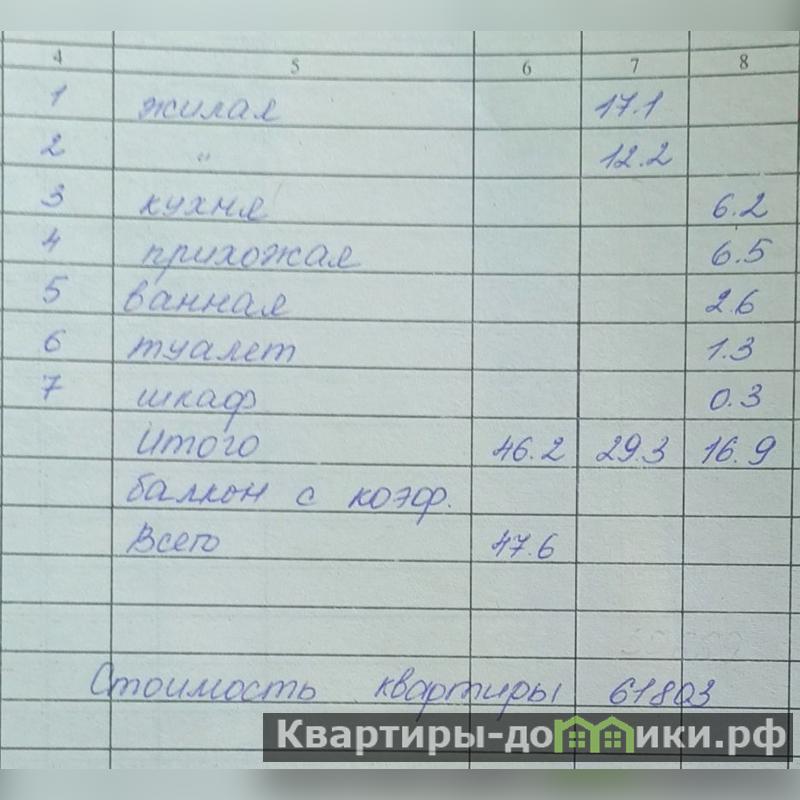 4 5 6 7 8
1 жилая 17.1
2 " 12.2
3 кухня 6.2
4 прихожая 6.5
5 ванная 2.6
6 туалет 1.3
7 шкаф 0.3
Итого 46.2 29.3 16.9
балкон с коэф.
Всего 47.6
Стоимость квартиры 61803
Квартиры-домики.рф